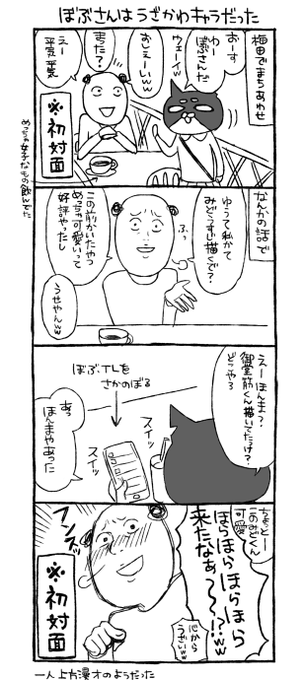 ぼぶさんはうざかわキャラだった
梅田でまちあわせ
おーす
わー
ぼぶさんだ
ウェーイw
おじぇーいww
また?
えー
平気平気
※初対面
めっちゃ女子なもの飲んでた
なんかの話で
ゆうて私かて
みどうすじ描くで?
ふっ
この前かいたやつ
めっちゃ可愛いって
好評やったし
うせやんww
えーほんま?
御堂筋くん描いてたっけ?
どこやろ
ぼぶTLを
さかのぼる
スイッ
スイッ
あっ
ほんまやあった
ちょっとー
このみどくん
可愛
ほらほらほらほら
来たなあ〜!?ww
フンスッ
心から
うざいw
※初対面
一人上方漫才のようだった